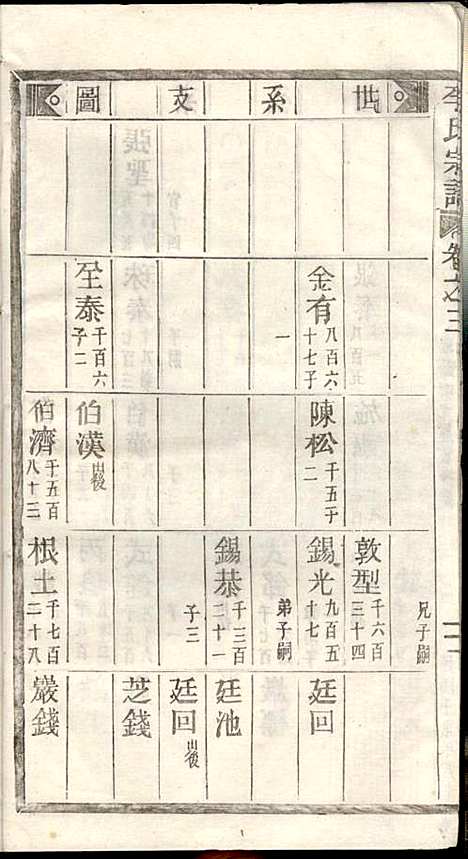 李氏宗譜
卷之三
世系支圖
兄子嗣
敦型 千六百三十四
金有 八百六十七子一
陳松 千五百二
錫光 九百五十七
廷回
弟子嗣
錫恭 千三百二十一
廷池
子三
廷回 出後
芝錢
至泰 千百六子二
伯漢 出後
伯濟 千五百八十三
根土 千七百二十八
嚴錢